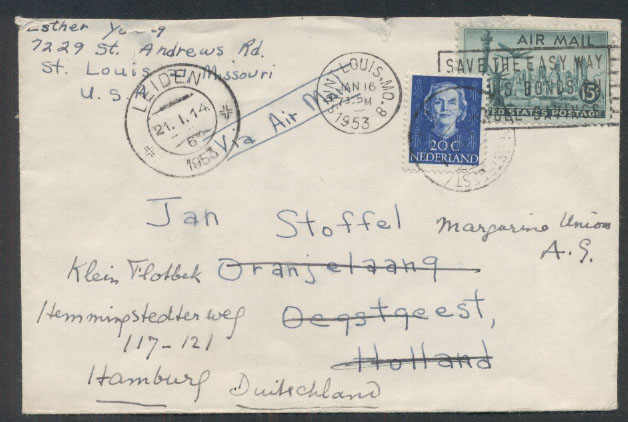 Esther
7229 St. Andrews Rd.
St. Louis Missouri
U.S.
LEIDEN
21.1.14
6
1953
Via Air Mail
SAINT LOUIS, MO. 8
JAN 16
PM
1953
AIR MAIL
SAVE THE EASY WAY
U.S. BONDS
15¢
UNITED STATES POSTAGE
20c
NEDERLAND
Jan Stoffel
Margarine Union
A.G.
Klein Flotbek Oranjelaang
Hemmingstedterweg Oegstgeest,
117-121 Holland
Hamburg Duitschland